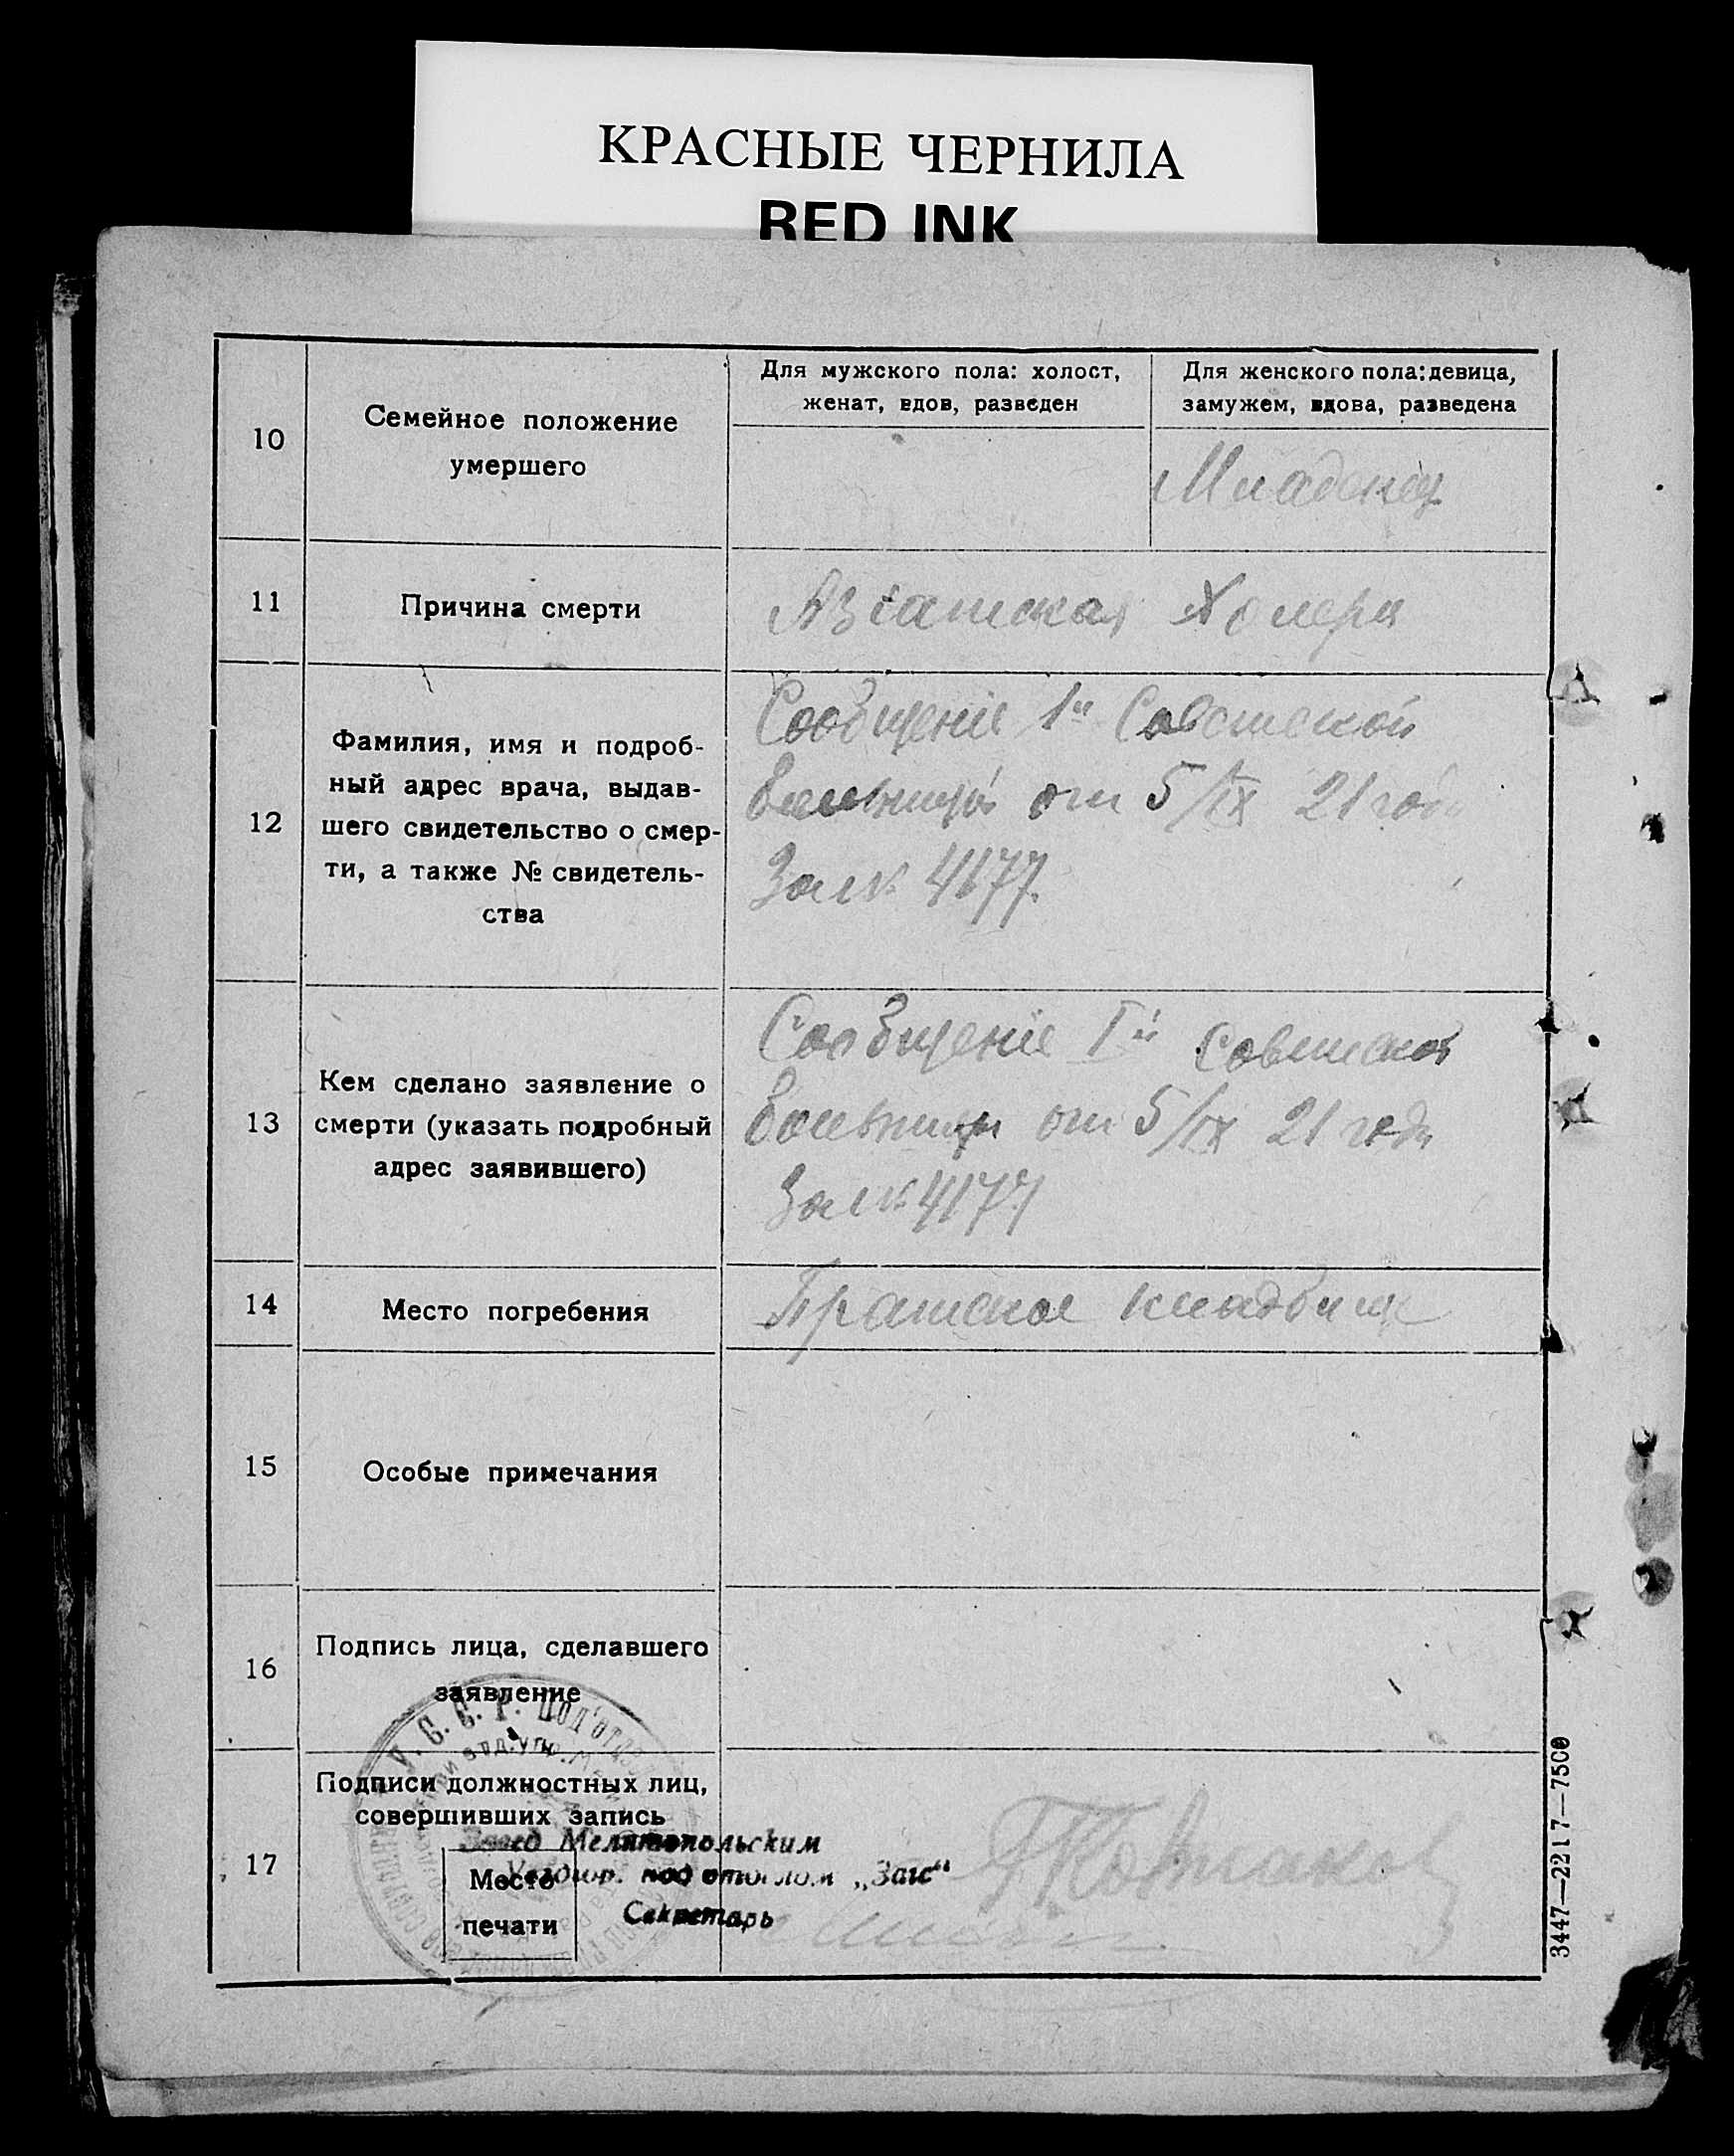 КРАСНЫЕ ЧЕРНИЛА
RED INK
10
Семейное положение
умершего
Для мужского пола: холост,
женат, вдов, разведен
Для женского пола: девица,
замужем, вдова, разведена
Младенец
11
Причина смерти
Азіатская Холера
12
Фамилия, имя и подроб-
ный адрес врача, выдав-
шего свидетельство о смер-
ти, а также № свидетель-
ства
Сообщеніе 1й Советской
больницы от 5/IX 21 года
За № 4177.
13
Кем сделано заявление о
смерти (указать подробный
адрес заявившего)
Сообщеніе Iй Советской
больницы от 5/IX 21 года
За № 4177
14
Место погребения
Братское кладбище
15
Особые примечания
16
Подпись лица, сделавшего
заявление
17
Подписи должностных лиц,
совершивших запись
Место
печати
У. С. С. Р. Под'отдел
Завед Мелитопольским
под отделом „Загс“
Секретарь
3447—2217—7500